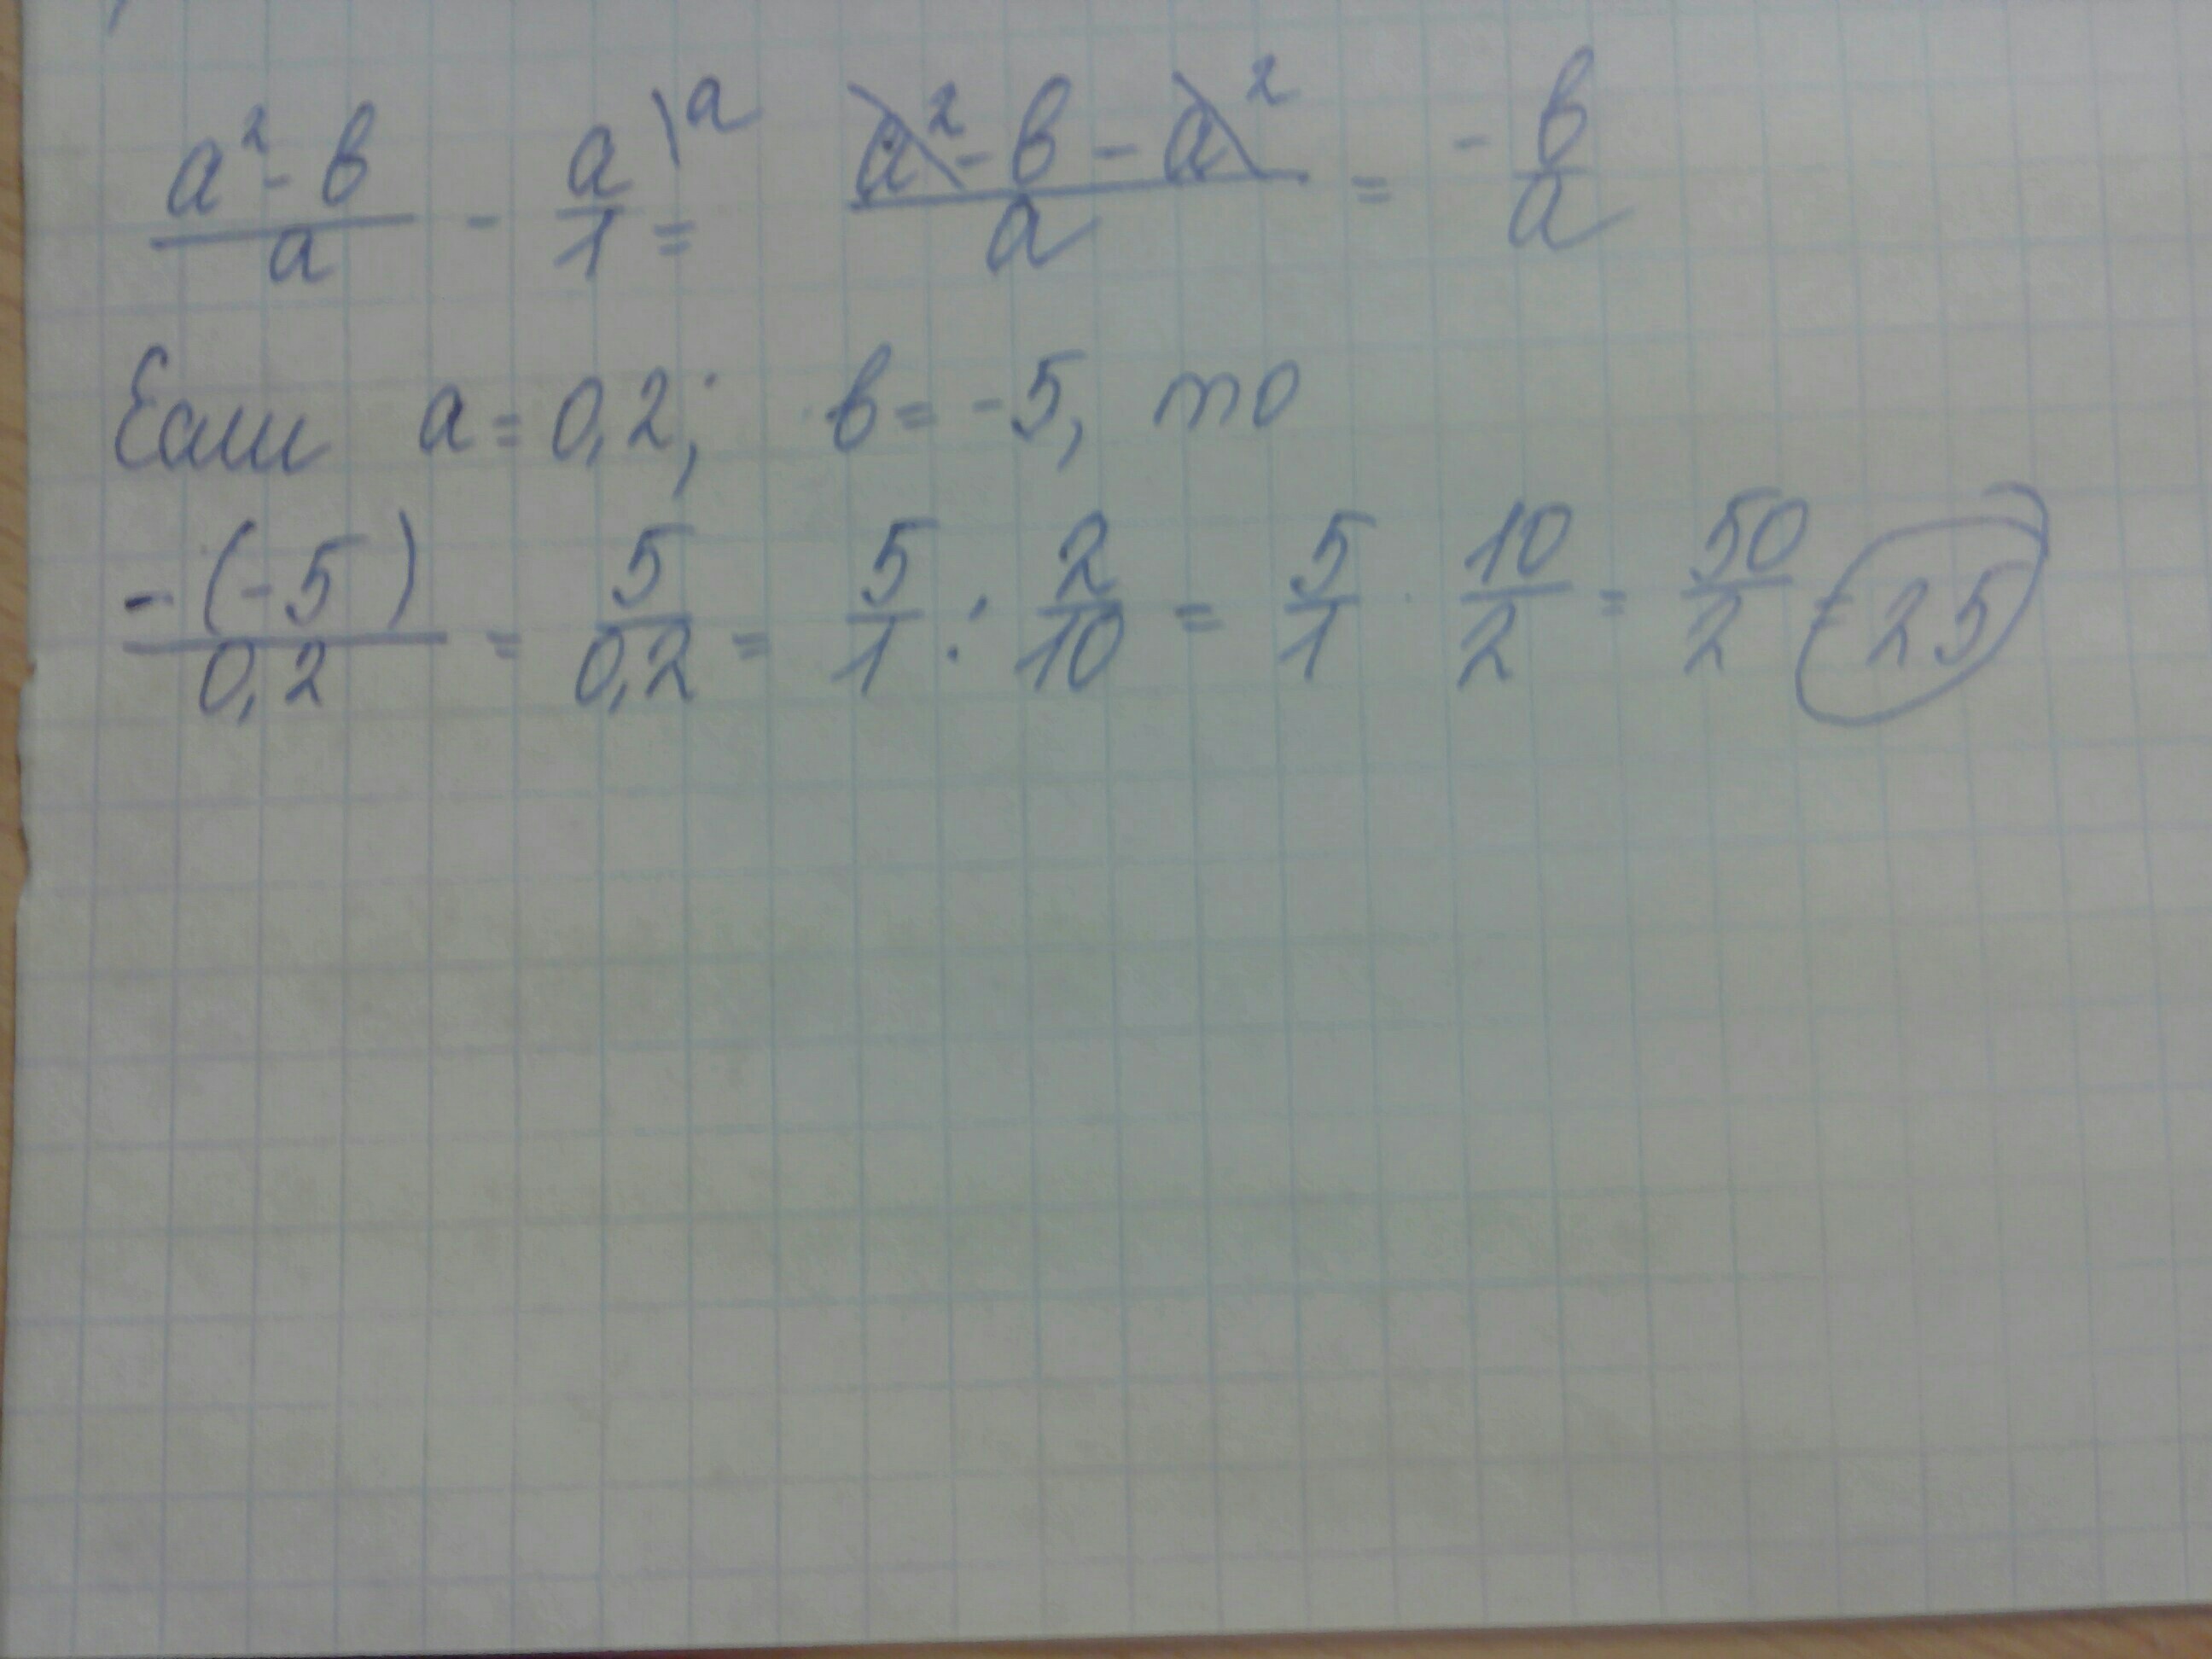 (a² - в)/a - a/1 \a = (a² - в - a²)/a = - в/a
Если a = 0,2; в = -5, то
-(-5)/0,2 = 5/0,2 = 5/1 : 2/10 = 5/1 · 10/2 = 50/2 = 25